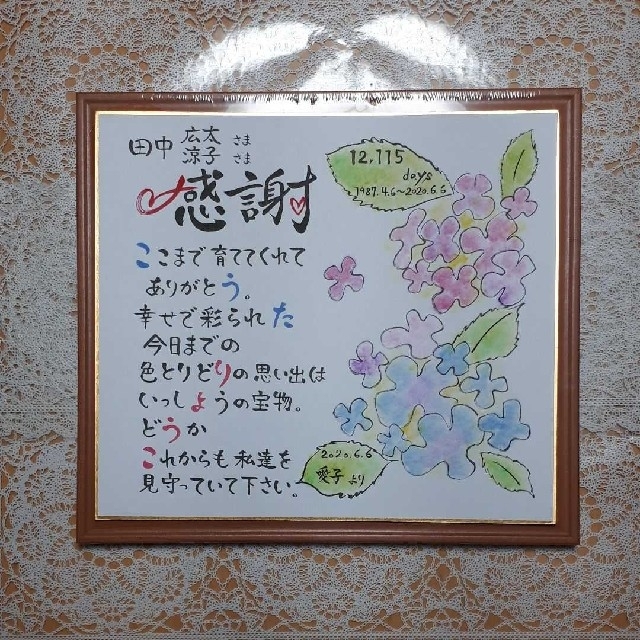 田中 広太 さま
涼子 さま
感謝
ここまで育ててくれて
ありがとう。
幸せで彩られた
今日までの
色とりどりの思い出は
いっしょうの宝物。
どうか
これからも私達を
見守っていて下さい。
12,115
days
1987.4.6~2020.6.6
2020.6.6
愛子より